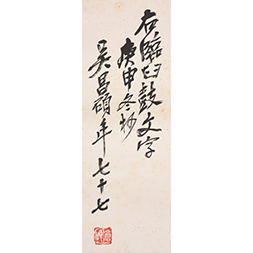 右臨石鼓文字
庚申冬杪
吳昌碩年七十七